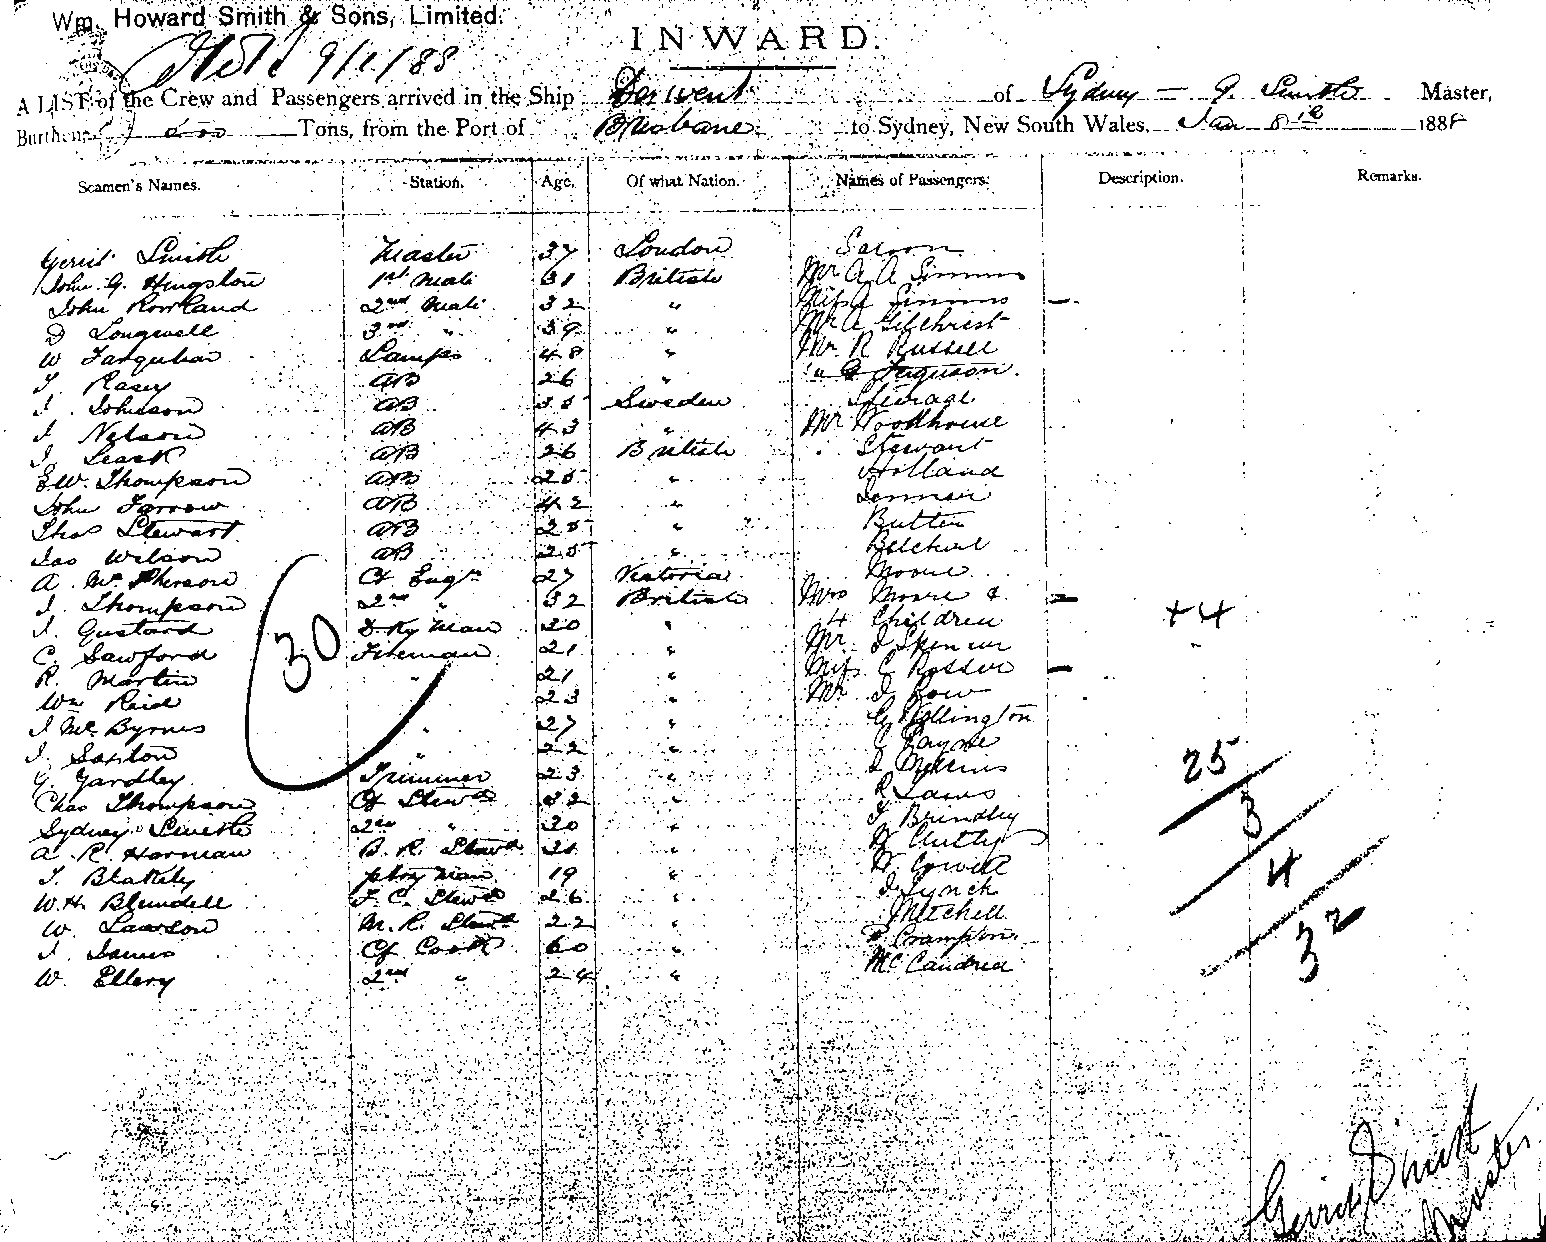 Wm. Howard Smith & Sons, Limited.
INWARD.
9/1/88
A LIST of the Crew and Passengers arrived in the Ship Derwent of Sydney — G. Smith Master,
Burthen Tons, from the Port of Brisbane to Sydney, New South Wales, Jan 8th 1888
Seamen's Names. Station. Age. Of what Nation. Names of Passengers. Description. Remarks.
Gerrit Smith Master 37 London Saloon
John G. Hingston 1st Mate 31 British Mr A A Simms
John Rowland 2nd Mate 32 " Miss A Simms —
D Longwell 3rd " 39 " Mr A Gilchrist
W Farquhar Lamps 48 " Mr. R Russell
T Rasey AB 26 " " G Ferguson
J. Johnson AB 35 Sweden Steerage
J. Nelson AB 43 " Mr Woodhouse
J. Leask AB 26 British Stewart
E.W. Thompson AB 25 " Holland
John Farrow AB 42 "
Thos Stewart AB 25 " Butten
Jas Wilson AB 25
A. McPherson Cf Engr 27 Victoria Moore
J. Thompson 2nd " 32 British Mrs Moore & —
J. Gustard D. Ky Man 20 " 4 Children +4
C. Sawford Fireman 21 " Mr. J Spencer
R. Martin " 21 " Miss C Rosser —
Wm Reid 23 " Mr J Row
J McByrnes " 27 " G Wellington
J. Saxton " 22 " C Payne
G Yardley Trimmer 23 " J
Chas Thompson Cf Stewd 32 " R James
Sydney Smith 2nd " 20 " T Brindley
A. R. Harman B. R. Stewd 21 "
T. Blakely Ptry Man 19 "
W.H. Blundell F. C. Stewd 26 " J Lynch
W. Lawson M. R. Stewd 22 " Mitchell
J. James Cf Cook 60 " Crampton
W. Ellery 2nd " 24 " McCandrea
30
25
3
4
32
Gerrit Smith
Master